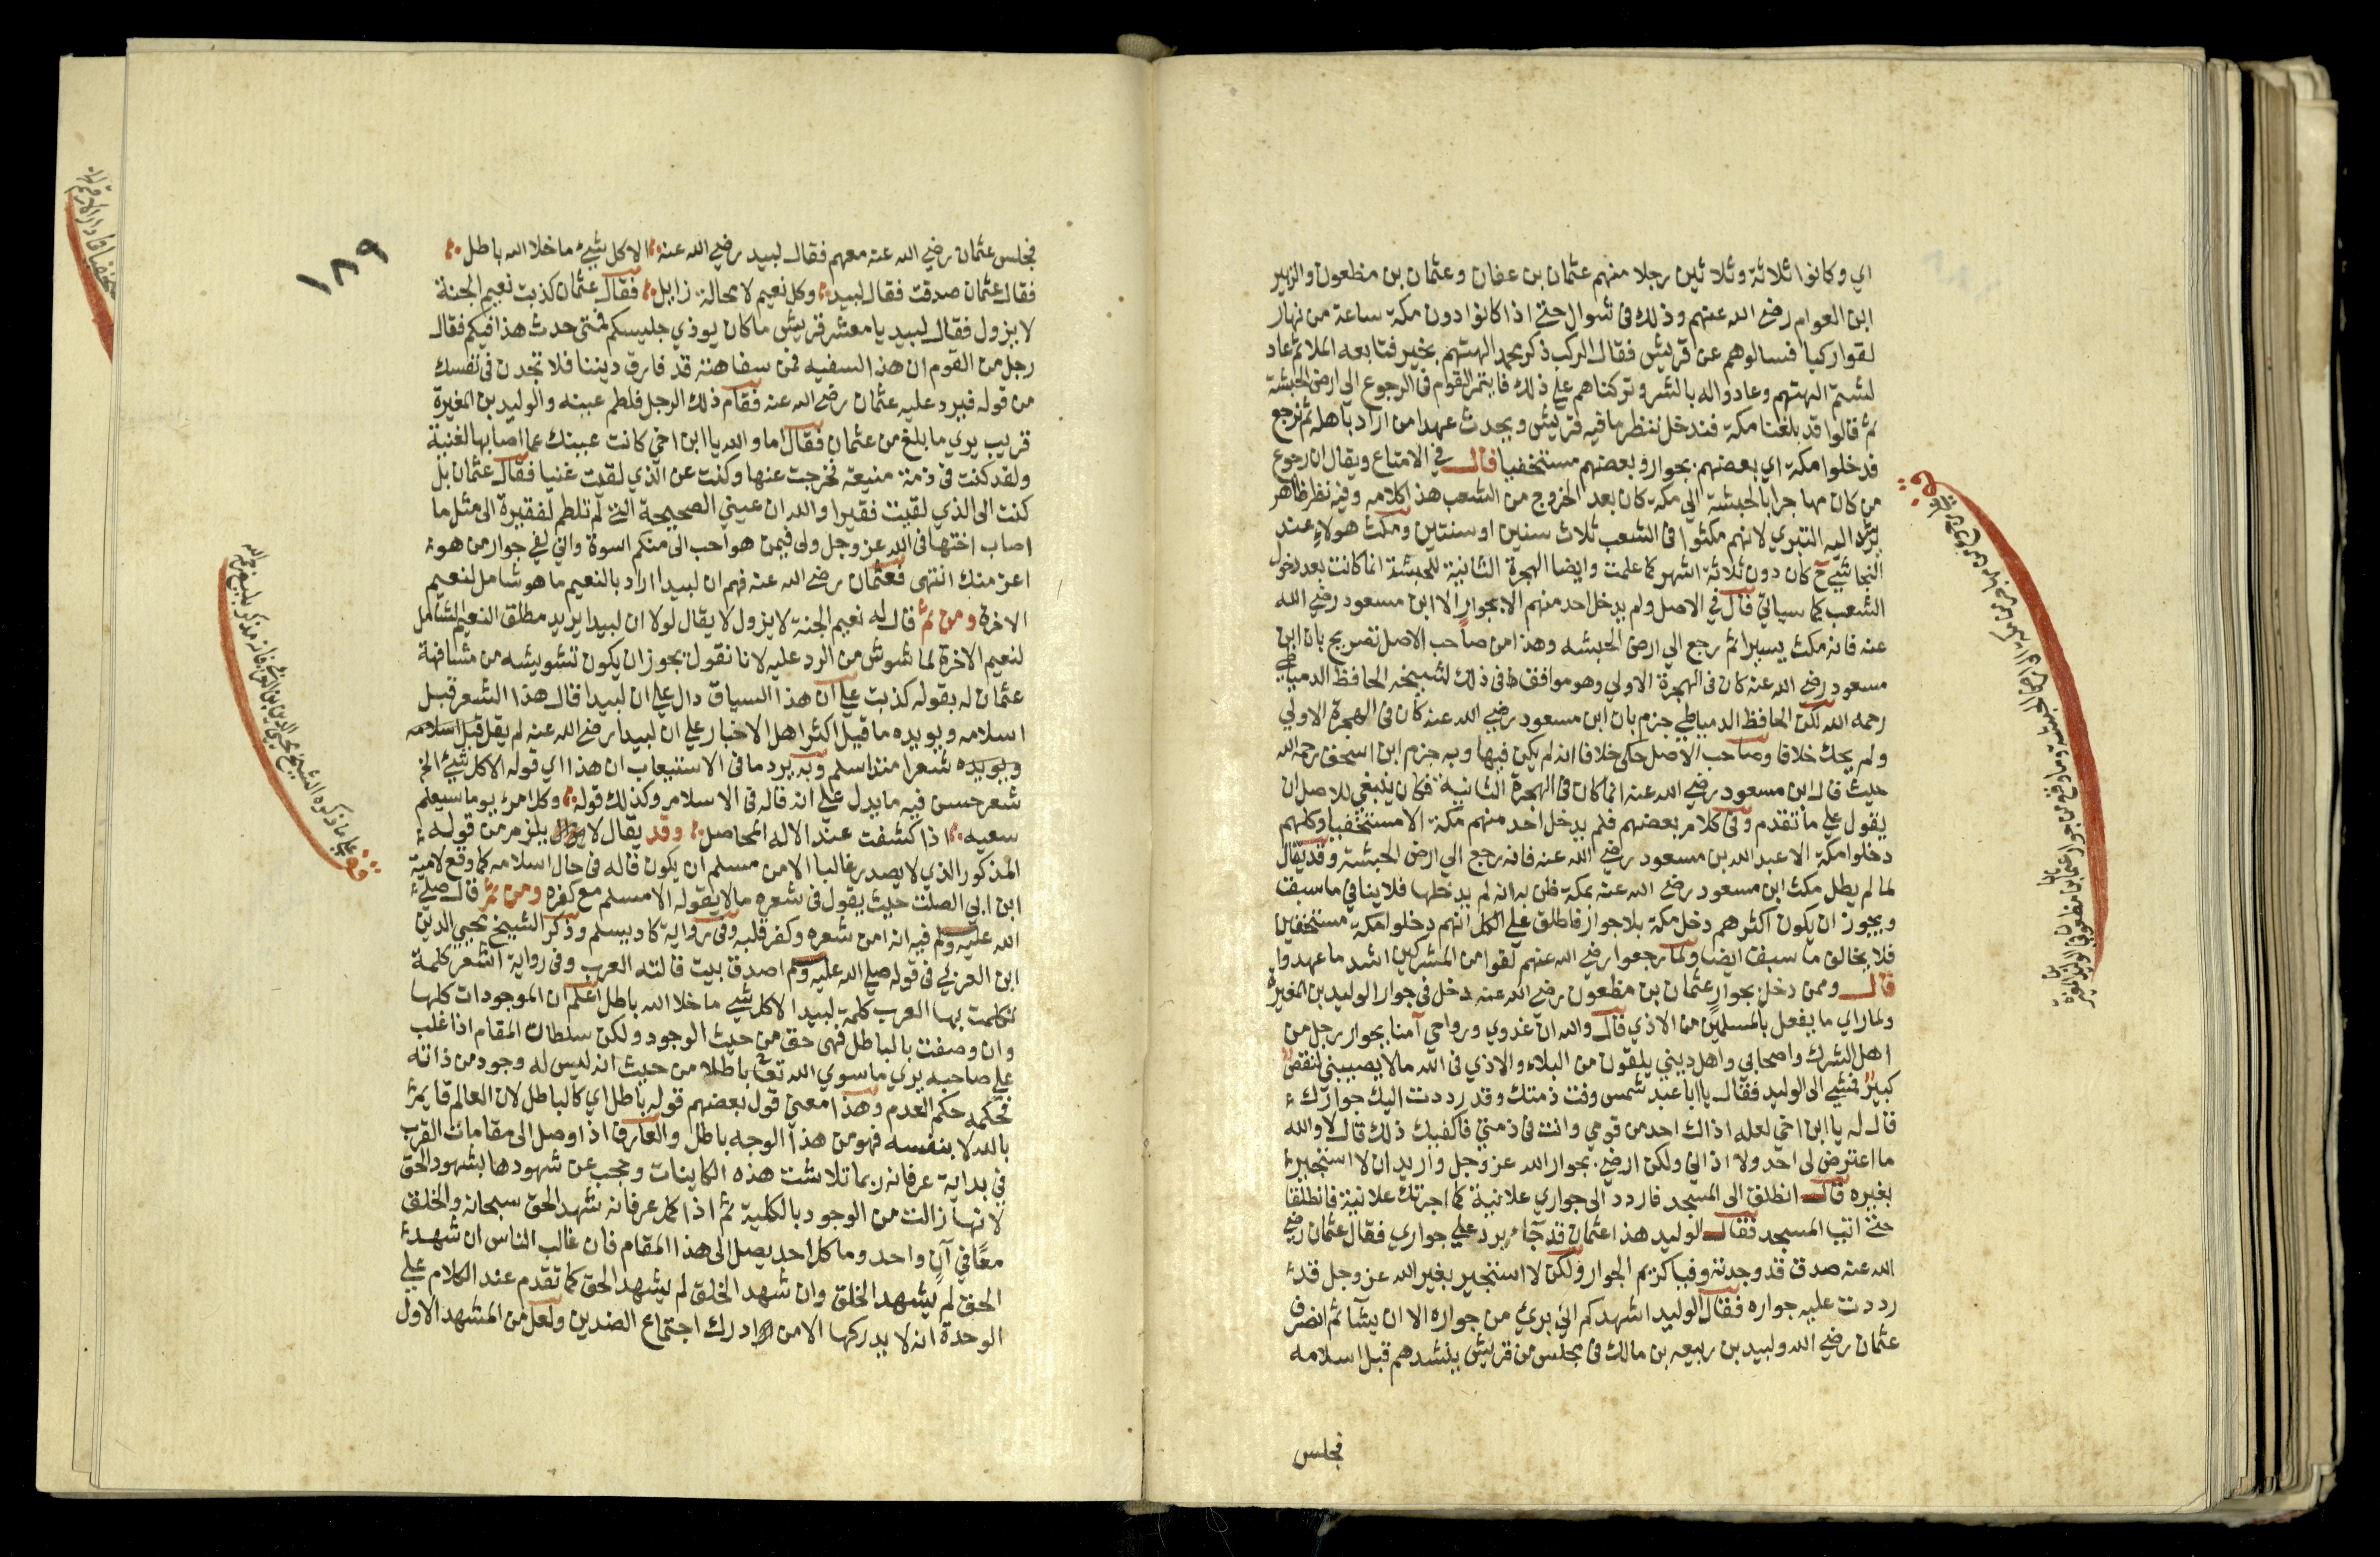 اي وكانوا ثلاثة وثلاثين رجلا منهم عثمان بن عفان وعثمان بن مظعون والزبير
ابن العوام رضي الله عنهم وذلك في شوال حتى اذا كانوا دون مكة ساعة من نهار
لقوا ركبا فسالوهم عن قريش فقال الركب ذكر محمد الهتهم بخير فتابعه الملا ثم عاد
لشتم الهتهم وعادوا له بالشر وتركناهم على ذلك فايتمر القوام في الرجوع الى ارض الحبشة
ثم قالوا قد بلغنا مكة فندخل ننظر ما فيه قريش ويحدث عهدا من اراد باهله ثم نرجع
فدخلوا مكة اي بعضهم بجوار وبعضهم مستخفيا قال في الامتاع ويقال ان رجوع
من كان مهاجرا بالحبشة الى مكة كان بعد الخروج من الشعب هذا كلامه وفيه نظر ظاهر
يرشد اليه التبري لانهم مكثوا في الشعب ثلاث سنين او سنتين ومكث هولاء عند
النجاشي ح كان دون ثلاثة اشهر كما علمت وايضا الهجرة الثانية للحبشة انما كانت بعد دخول
الشعب كما سياتي قال في الاصل ولم يدخل احد منهم الا بجوار الا ابن مسعود رضي الله
عنه فانه مكث يسيرا ثم رجع الى ارض الحبشه وهذا من صاحب الاصل تصريح بان ابن
مسعود رضي الله عنه كان في الهجرة الاولي وهو موافق في ذلك لشيخه الحافظ الدمياطي
رحمه الله لكن الحافظ الدمياطي جزم بان ابن مسعود رضي الله عنه كان في الهجرة الاولي
ولم يحك خلافا وصاحب الاصل حكى خلافا انه لم يكن فيها وبه جزم ابن اسحق رحمه الله
حيث قال ابن مسعود رضي الله عنه انما كان في الهجرة الثانية فكان ينبغي للاصل ان
يقول على ما تقدم وفي كلام بعضهم فلم يدخل احد منهم مكة الا مستخفيا وكلهم
دخلوا مكة الا عبد الله بن مسعود رضي الله عنه فانه رجع الى ارض الحبشة وقد يقال
لما لم يطل مكث ابن مسعود رضي الله عنه بمكة ظن به انه لم يدخلها فلا ينافي ما سبق
ويجوز ان يكون اكثرهم دخل مكة بلا جوار فاطلق على الكل انهم دخلوا مكة مستخفين
فلا يخالف ما سبق ايضا ولما رجعوا رضي الله عنهم لقوا من المشركين اشد ما عهدوا
قال وممن دخل بجوار عثمان بن مظعون رضي الله عنه دخل في جوار الوليد بن المغيرة
ولما راي ما يفعل بالمسلمين من الاذي قال والله ان غدوي ورواحي آمنا بجوار رجل من
اهل الشرك واصحابي واهل ديني يلقون من البلاء والاذي في الله ما لا يصيبني لنقص
كبير فمشى الى الوليد فقال يا ابا عبد شمس وفت ذمتك وقد رددت اليك جوارك
قال له يا ابن اخي لعله اذاك احد من قومي وانت في ذمتي فاكفيك ذلك قال لا والله
ما اعترض لي احد ولا اذاني ولكن ارضى بجوار الله عز وجل واريد ان لا استجير
بغيره قال انطلق الى المسجد فاردد الي جواري علانية كما اجرتك علانية فانطلقا
حتى اتيا المسجد فقال الوليد هذا عثمان قد جآء يرد علي جواري فقال عثمان رضي
الله عنه صدق قد وجدته وفيا كريم الجوار ولكن لا استجير بغير الله عز وجل قد
رددت عليه جواره فقال الوليد اشهدكم اني بري من جواره الا ان يشآ ثم انصرف
عثمان رضي الله ولبيد بن ربيعه بن مالك في مجلس من قريش ينشدهم قبل اسلامه
فجلس
١٨٩
فجلس عثمان رضي الله عنه معهم فقال لبيد رضي الله عنه الا كل شيء ما خلا الله باطل
فقال عثمان صدقت فقال لبيد وكل نعيم لا محالة زايل فقال عثمان كذبت نعيم الجنة
لا يزول فقال لبيد يا معشر قريش ما كان يوذي جليسكم فمتى حدث هذا فيكم فقال
رجل من القوم ان هذا السفيه فمن سفاهته قد فارق ديننا فلا تجدن في نفسك
من قوله فرد عليه عثمان رضي الله عنه فقام ذلك الرجل فلطم عينه والوليد بن المغيرة
قريب يري ما بلغ من عثمان فقال اما والله يا ابن اخي كانت عينك عما اصابها لغنية
ولقد كنت في ذمة منيعة فخرجت عنها وكنت عن الذي لقيت غنيا فقال عثمان بل
كنت الى الذي لقيت فقيرا والله ان عيني الصحيحة التي لم تلطم لفقيرة الى مثل ما
اصاب اختها في الله عز وجل ولي فيمن هو احب الي منكم اسوة واني لفي جوار من هو
اعز منك انتهى فعثمان رضي الله عنه فهم ان لبيدا اراد بالنعيم ما هو شامل لنعيم
الاخرة ومن ثم قال له نعيم الجنة لا يزول لا يقال لولا ان لبيدا يريد مطلق النعيم الشامل
لنعيم الاخرة لما شوش من الرد عليه لانا نقول يجوز ان يكون تشويشه من مشافهة
عثمان له بقوله كذبت على ان هذا السياق دال على ان لبيدا قال هذا الشعر قبل
اسلامه ويويده ما قيل اكثر اهل الاخبار على ان لبيدا رضي الله عنه لم يقل قبل اسلامه
ويويده شعرا منذ اسلم وبه يرد ما في الاستيعاب ان هذا اي قوله الا كل شيء الخ
شعر حسن فيه ما يدل على انه قاله في الاسلام وكذلك قوله وكل امرء يوما سيعلم
سعيه اذا كشفت عند الاله المحاصل وقد يقال لا يلزم من قوله
المذكور الذي لا يصدر غالبا الا من مسلم ان يكون قاله في حال اسلامه كما وقع لامية
ابن ابي الصلت حيث يقول في شعره ما لا يقوله الا مسلم مع كفره ومن ثم قال صلى
الله عليه وسلم فيه انه امن شعره وكفر قلبه وفي رواية كاد يسلم وذكر الشيخ محيي الدين
ابن العربي في قوله صلى الله عليه وسلم اصدق بيت قالته العرب وفي رواية اشعر كلمة
تكلمت بها العرب كلمة لبيد الا كل شي ما خلا الله باطل اعلم ان الموجودات كلها
وان وصفت بالباطل فهي حق من حيث الوجود ولكن سلطان المقام اذا غلب
على صاحبه يري ما سوي الله تعالى باطلا من حيث انه ليس له وجود من ذاته
فحكمه حكم العدم وهذا معنى قول بعضهم قوله باطل اي كالباطل لان العالم قايم
بالله لا بنفسه فهو من هذا الوجه باطل والعارف اذا وصل الى مقامات القرب
في بداية عرفانه ربما تلاشت هذه الكاينات وحجب عن شهودها بشهود الحق
لا انها زالت من الوجود بالكلية ثم اذا كمل عرفانه شهد الحق سبحانه والخلق
معًا في آن واحد وما كل احد يصل الى هذا المقام فان غالب الناس ان شهد
الحق لم يشهد الخلق وان شهد الخلق لم يشهد الحق كما تقدم عند الكلام على
الوحدة انه لا يدركها الا من ادرك اجتماع الضدين ولعل من المشهد الاول